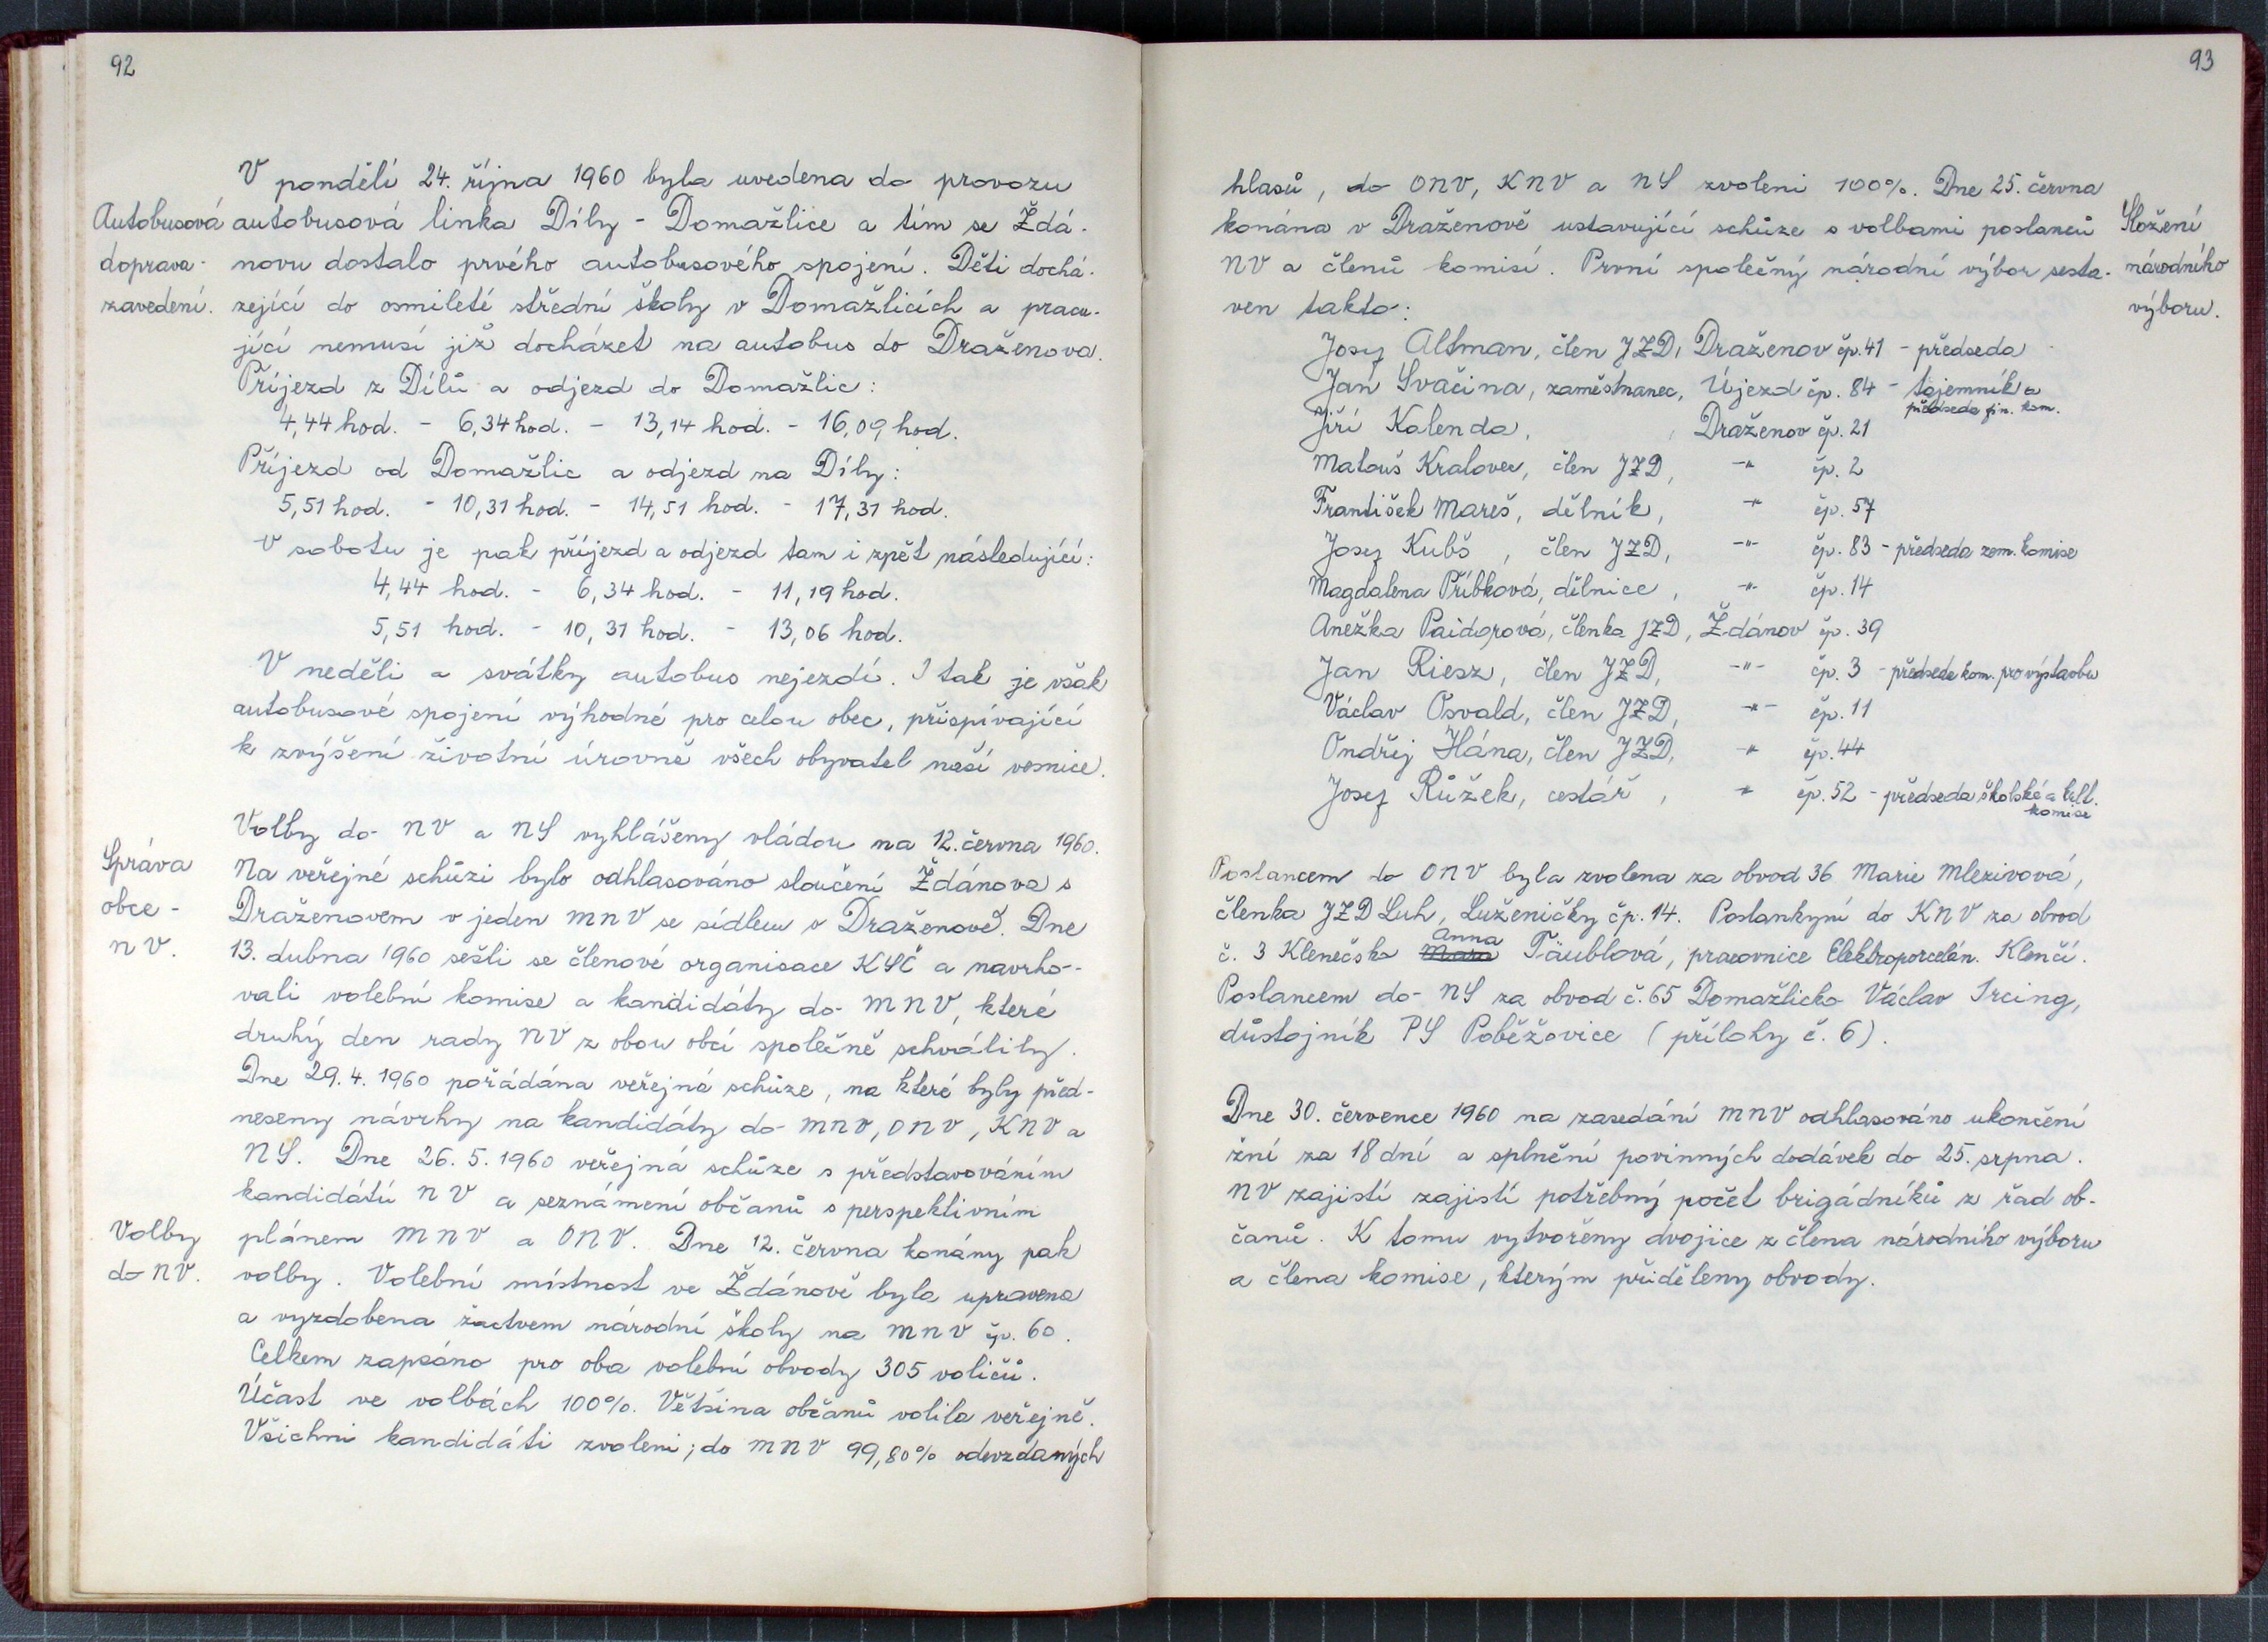 92
V pondělí 24. října 1960 byla uvedena do provozu
Autobusová autobusová linka Díly - Domažlice a tím se Ždá-
doprava - novu dostalo prvého autobusového spojení. Děti dochá-
zavedení. zející do osmileté střední školy v Domažlicích a pracu-
jící nemusí již docházet na autobus do Draženova.
Příjezd z Dílů a odjezd do Domažlic:
4,44 hod. - 6,34 hod. - 13,14 hod. - 16,09 hod.
Příjezd od Domažlic a odjezd na Díly:
5,51 hod. - 10,31 hod. - 14,51 hod. - 17,31 hod.
V sobotu je pak příjezd a odjezd tam i zpět následující:
4,44 hod. - 6,34 hod. - 11,19 hod.
5,51 hod. - 10,31 hod. - 13,06 hod.
V neděli a svátky autobus nejezdí. I tak je však
autobusové spojení výhodné pro celou obec, přispívající
k zvýšení životní úrovně všech obyvatel naší vesnice.
Volby do NV a NS vyhlášeny vládou na 12. června 1960.
Správa Na veřejné schůzi bylo odhlasováno sloučení Ždánova s
obce - Draženovem v jeden MNV se sídlem v Draženově. Dne
NV. 13. dubna 1960 sešli se členové organisace KSČ a navrho-
vali volební komise a kandidáty do MNV, které
druhý den rady NV z obou obcí společně schválily.
Dne 29. 4. 1960 pořádána veřejná schůze, na které byly před-
neseny návrhy na kandidáty do MNV, ONV, KNV a
NS. Dne 26. 5. 1960 veřejná schůze s představováním
kandidátů NV a seznámení občanů s perspektivním
Volby plánem MNV a ONV. Dne 12. června konány pak
do NV. volby. Volební místnost ve Ždánově byla upravena
a vyzdobena žactvem národní školy na MNV čp. 60.
Celkem zapsáno pro oba volební obvody 305 voličů.
Účast ve volbách 100%. Většina občanů volila veřejně.
Všichni kandidáti zvoleni; do MNV 99,80% odevzdaných
93
hlasů, do ONV, KNV a NS zvoleni 100%. Dne 25. června
konána v Draženově ustavující schůze s volbami poslanců Složení
NV a členů komisí. První společný národní výbor sesta- národního
ven takto: výboru.
Josef Altman, člen JZD, Draženov čp. 41 - předseda
Jan Svačina, zaměstnanec, Újezd čp. 84 - tajemník a
předseda fin. kom.
Jiří Kalenda, , Draženov čp. 21
Matouš Kralovec, člen JZD, -"- čp. 2
František Mareš, dělník, -"- čp. 57
Josef Kubš, člen JZD, -"- čp. 83 - předseda zem. komise
Magdalena Příbková, dělnice, -"- čp. 14
Anežka Paidarová, členka JZD, Ždánov čp. 39
Jan Riesz, člen JZD, -"- čp. 3 - předseda kom. pro výstavbu
Václav Osvald, člen JZD, -"- čp. 11
Ondřej Hána, člen JZD, -"- čp. 44
Josef Růžek, cestář, -"- čp. 52 - předseda školské a kult.
komise
Poslancem do ONV byla zvolena za obvod 36 Marie Mlezivová,
členka JZD Luh, Luženičky čp. 14. Poslankyní do KNV za obvod
č. 3 Klenečsko Anna Täublová, pracovnice Elektroporcelán. Klenčí.
Poslancem do NS za obvod č. 65 Domažlicko Václav Ircing,
důstojník PS Poběžovice (přílohy č. 6).
Dne 30. července 1960 na zasedání MNV odhlasováno ukončení
žní za 18 dní a splnění povinných dodávek do 25. srpna.
NV zajistí zajistí potřebný počet brigádníků z řad ob-
čanů. K tomu vytvořeny dvojice z člena národního výboru
a člena komise, kterým přiděleny obvody.